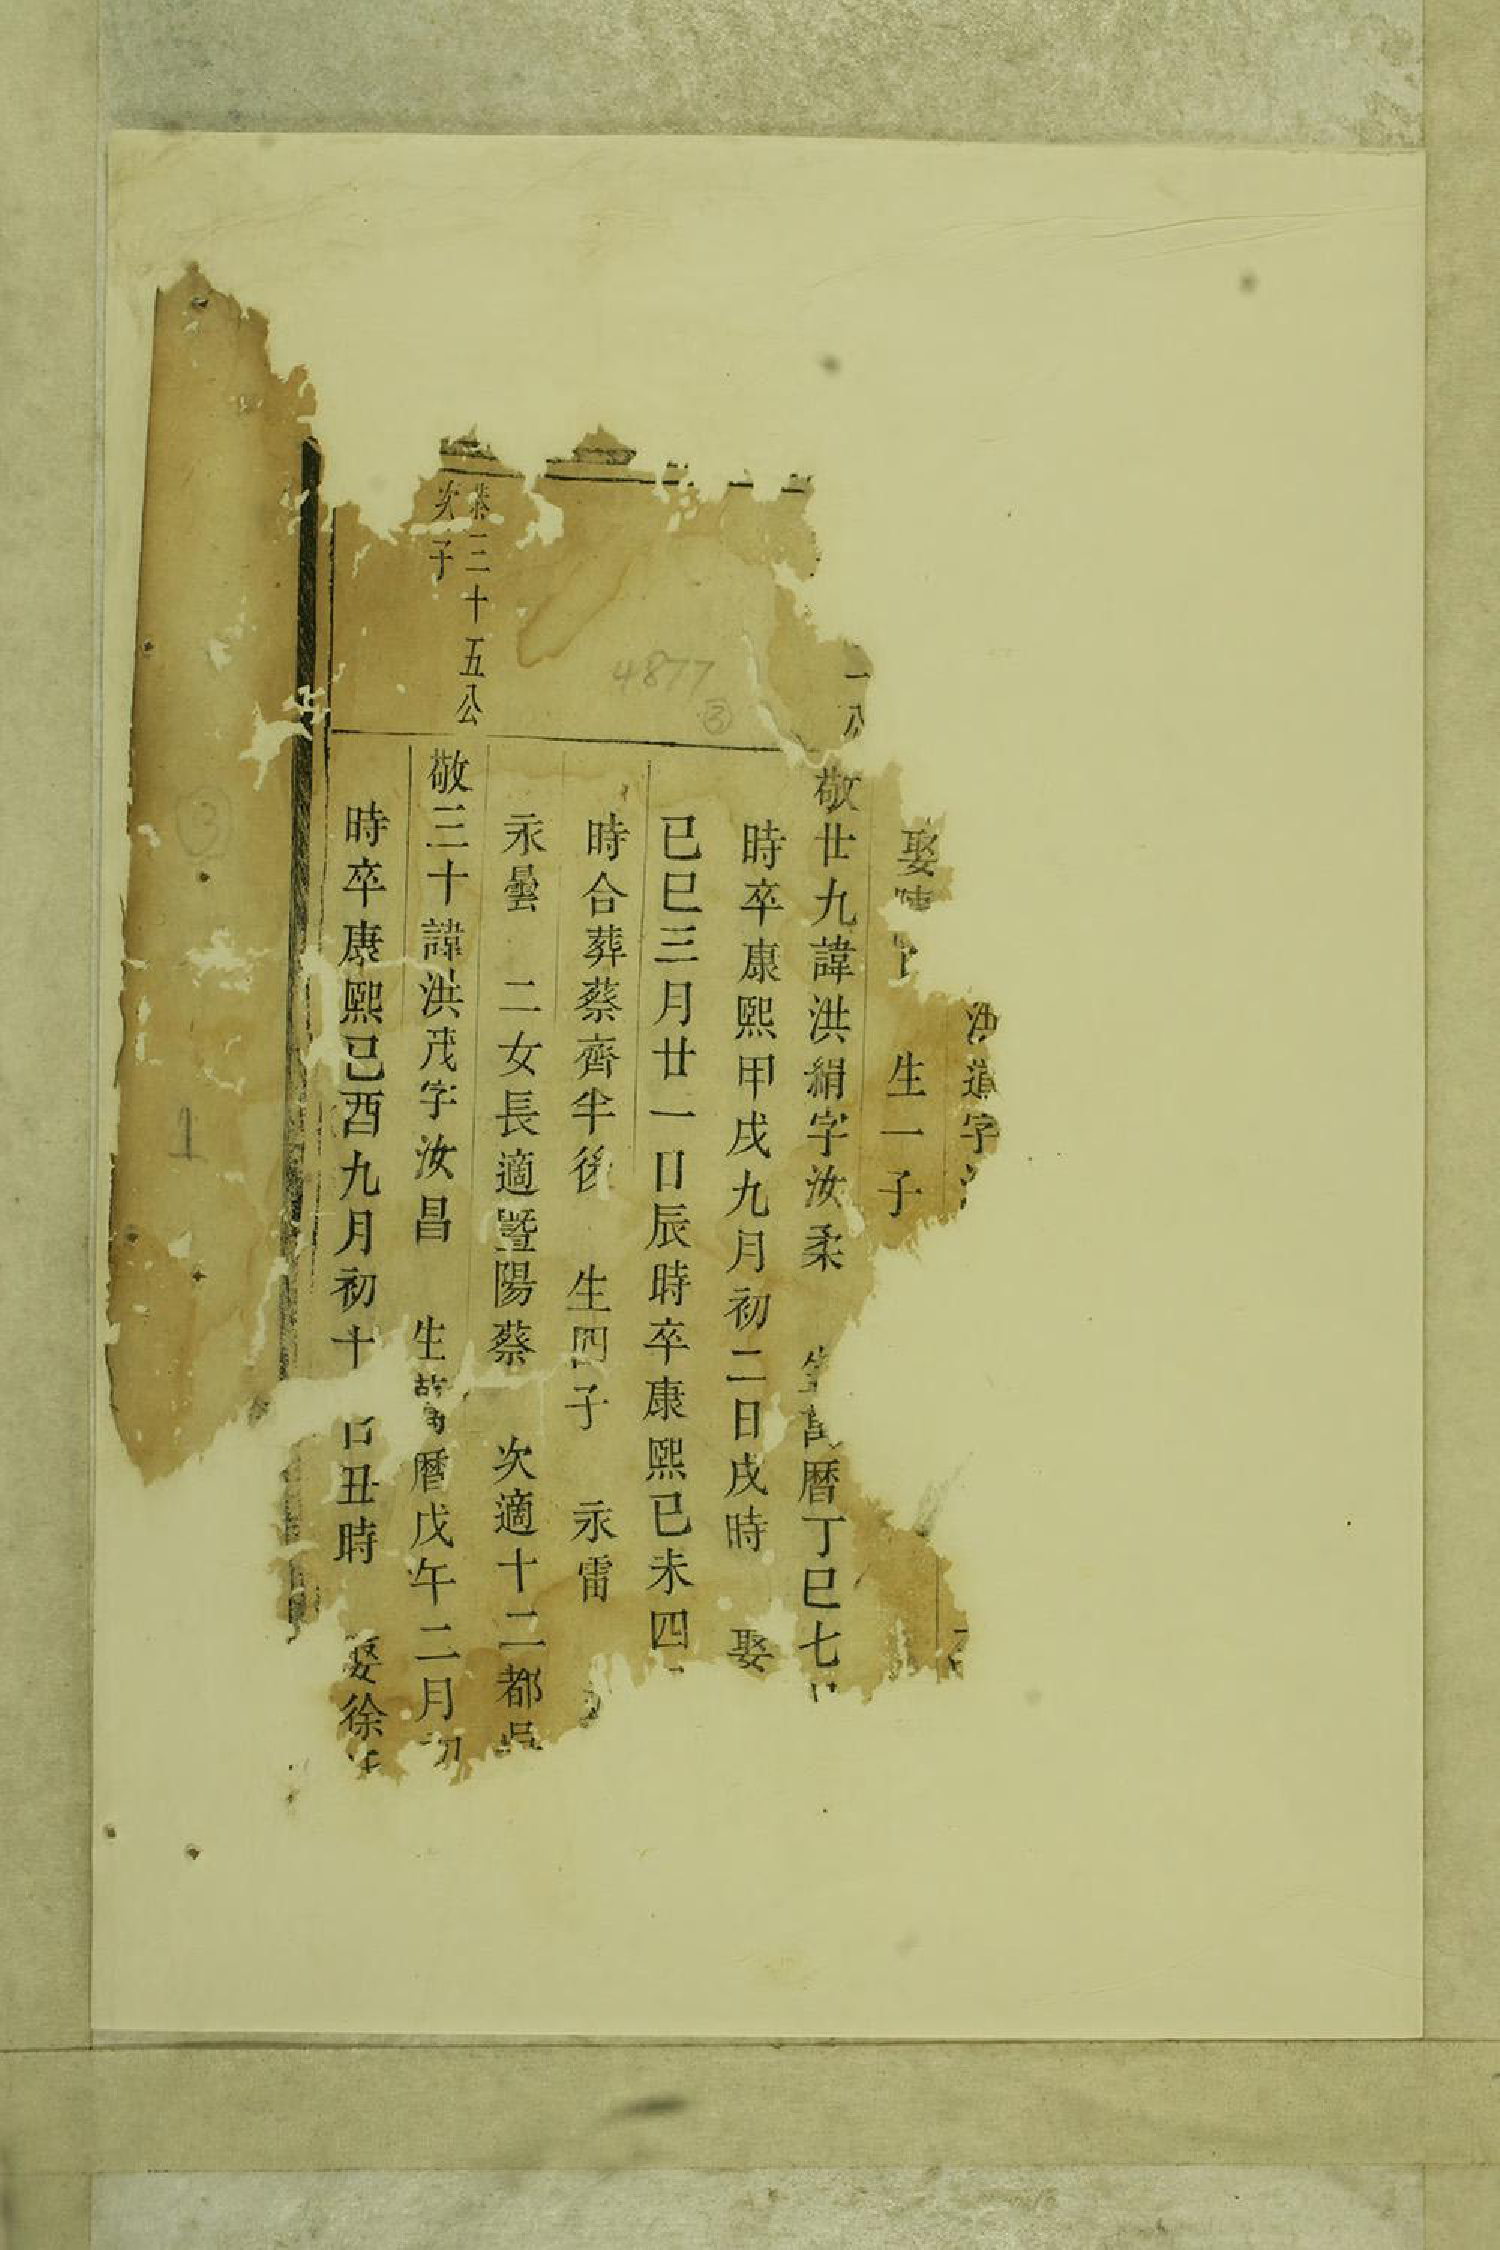 道字
娶
生一子
敬廿九諱洪絹字汝柔 生萬曆丁巳七
時卒康熙甲戌九月初二日戌時 娶
已巳三月廿一日辰時卒康熙已未四
時合葬蔡齊半後 生四子 永雷
永曇 二女長適暨陽蔡 次適十二都
恭三十五公
次子
敬三十諱洪茂字汝昌 生萬曆戊午二月初
時卒康熙已酉九月初十 日丑時 娶徐
4877
③
③
1